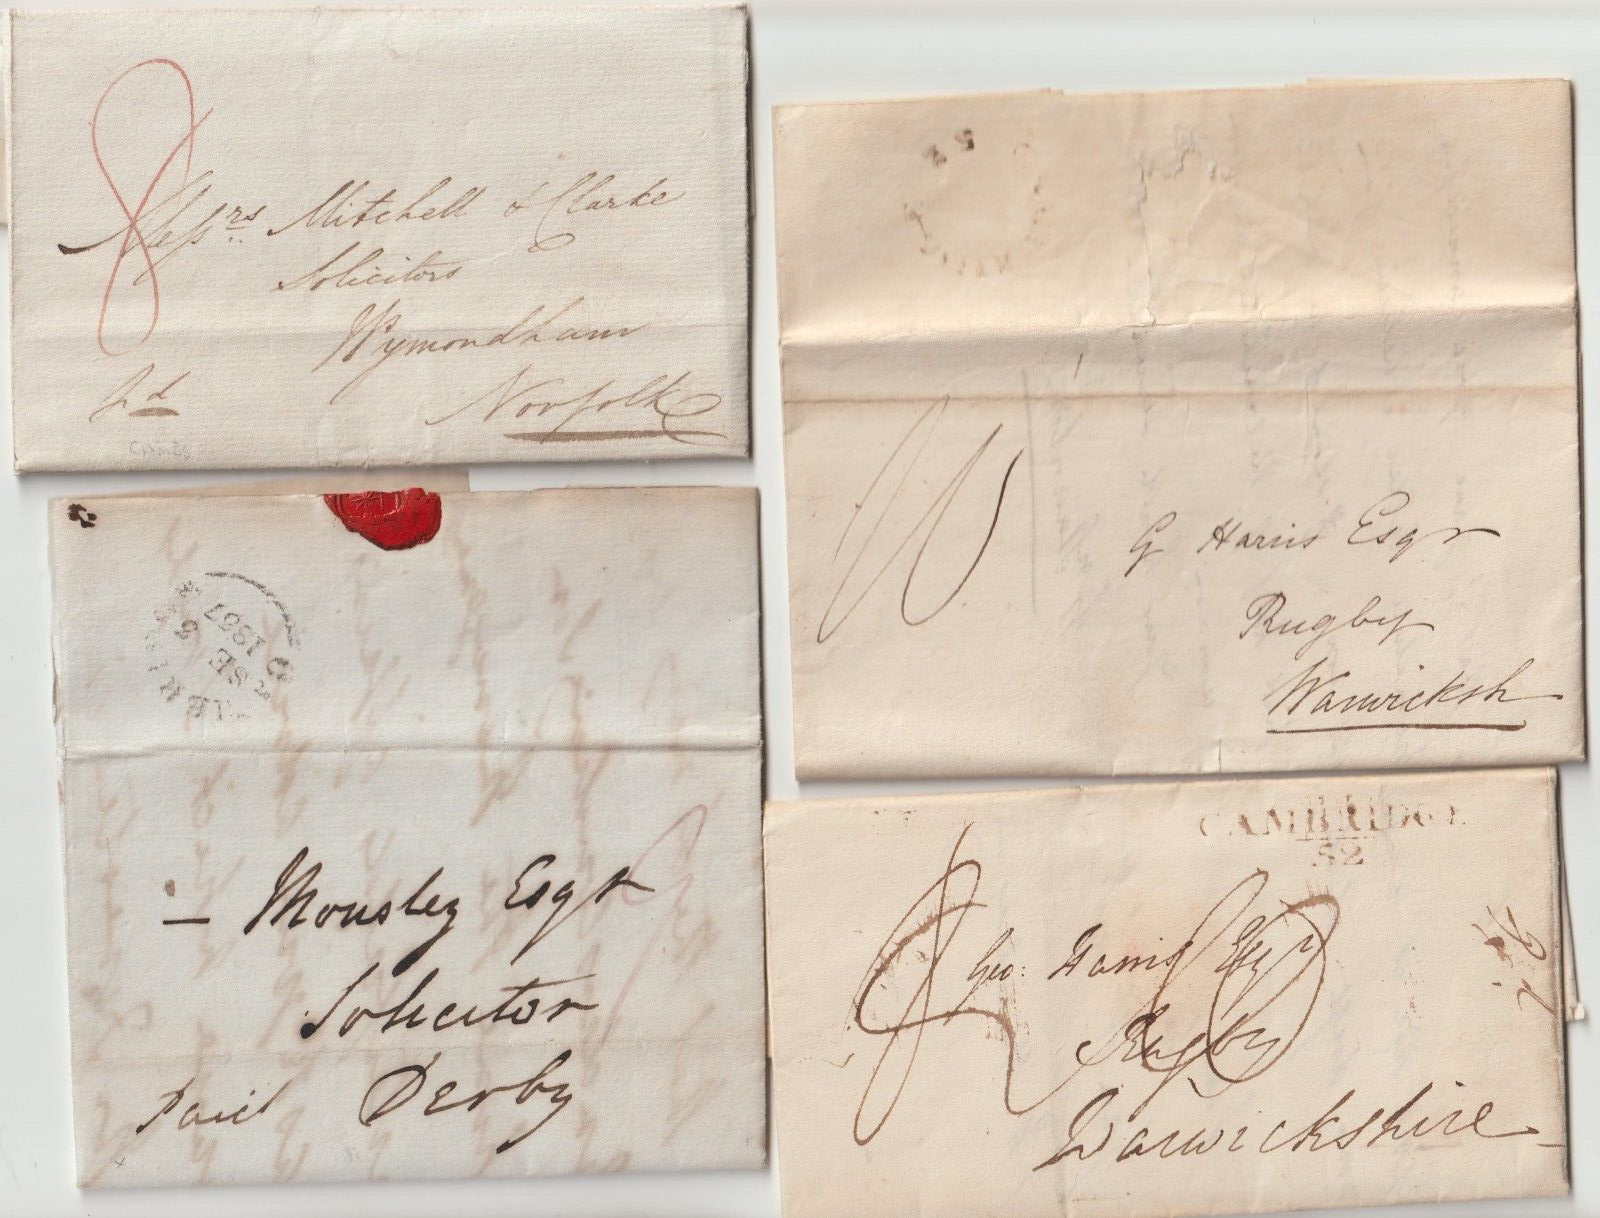 8
Messrs Mitchell & Clarke
Solicitors
Wymondham
pd
Norfolk
G Harris Esqr
Rugby
Warwicksh
SE
1837
Mousley Esqr
Solicitor
Paid Derby
CAMBRIDGE
52
Geo: Harris Esqr
Rugby
Warwickshire